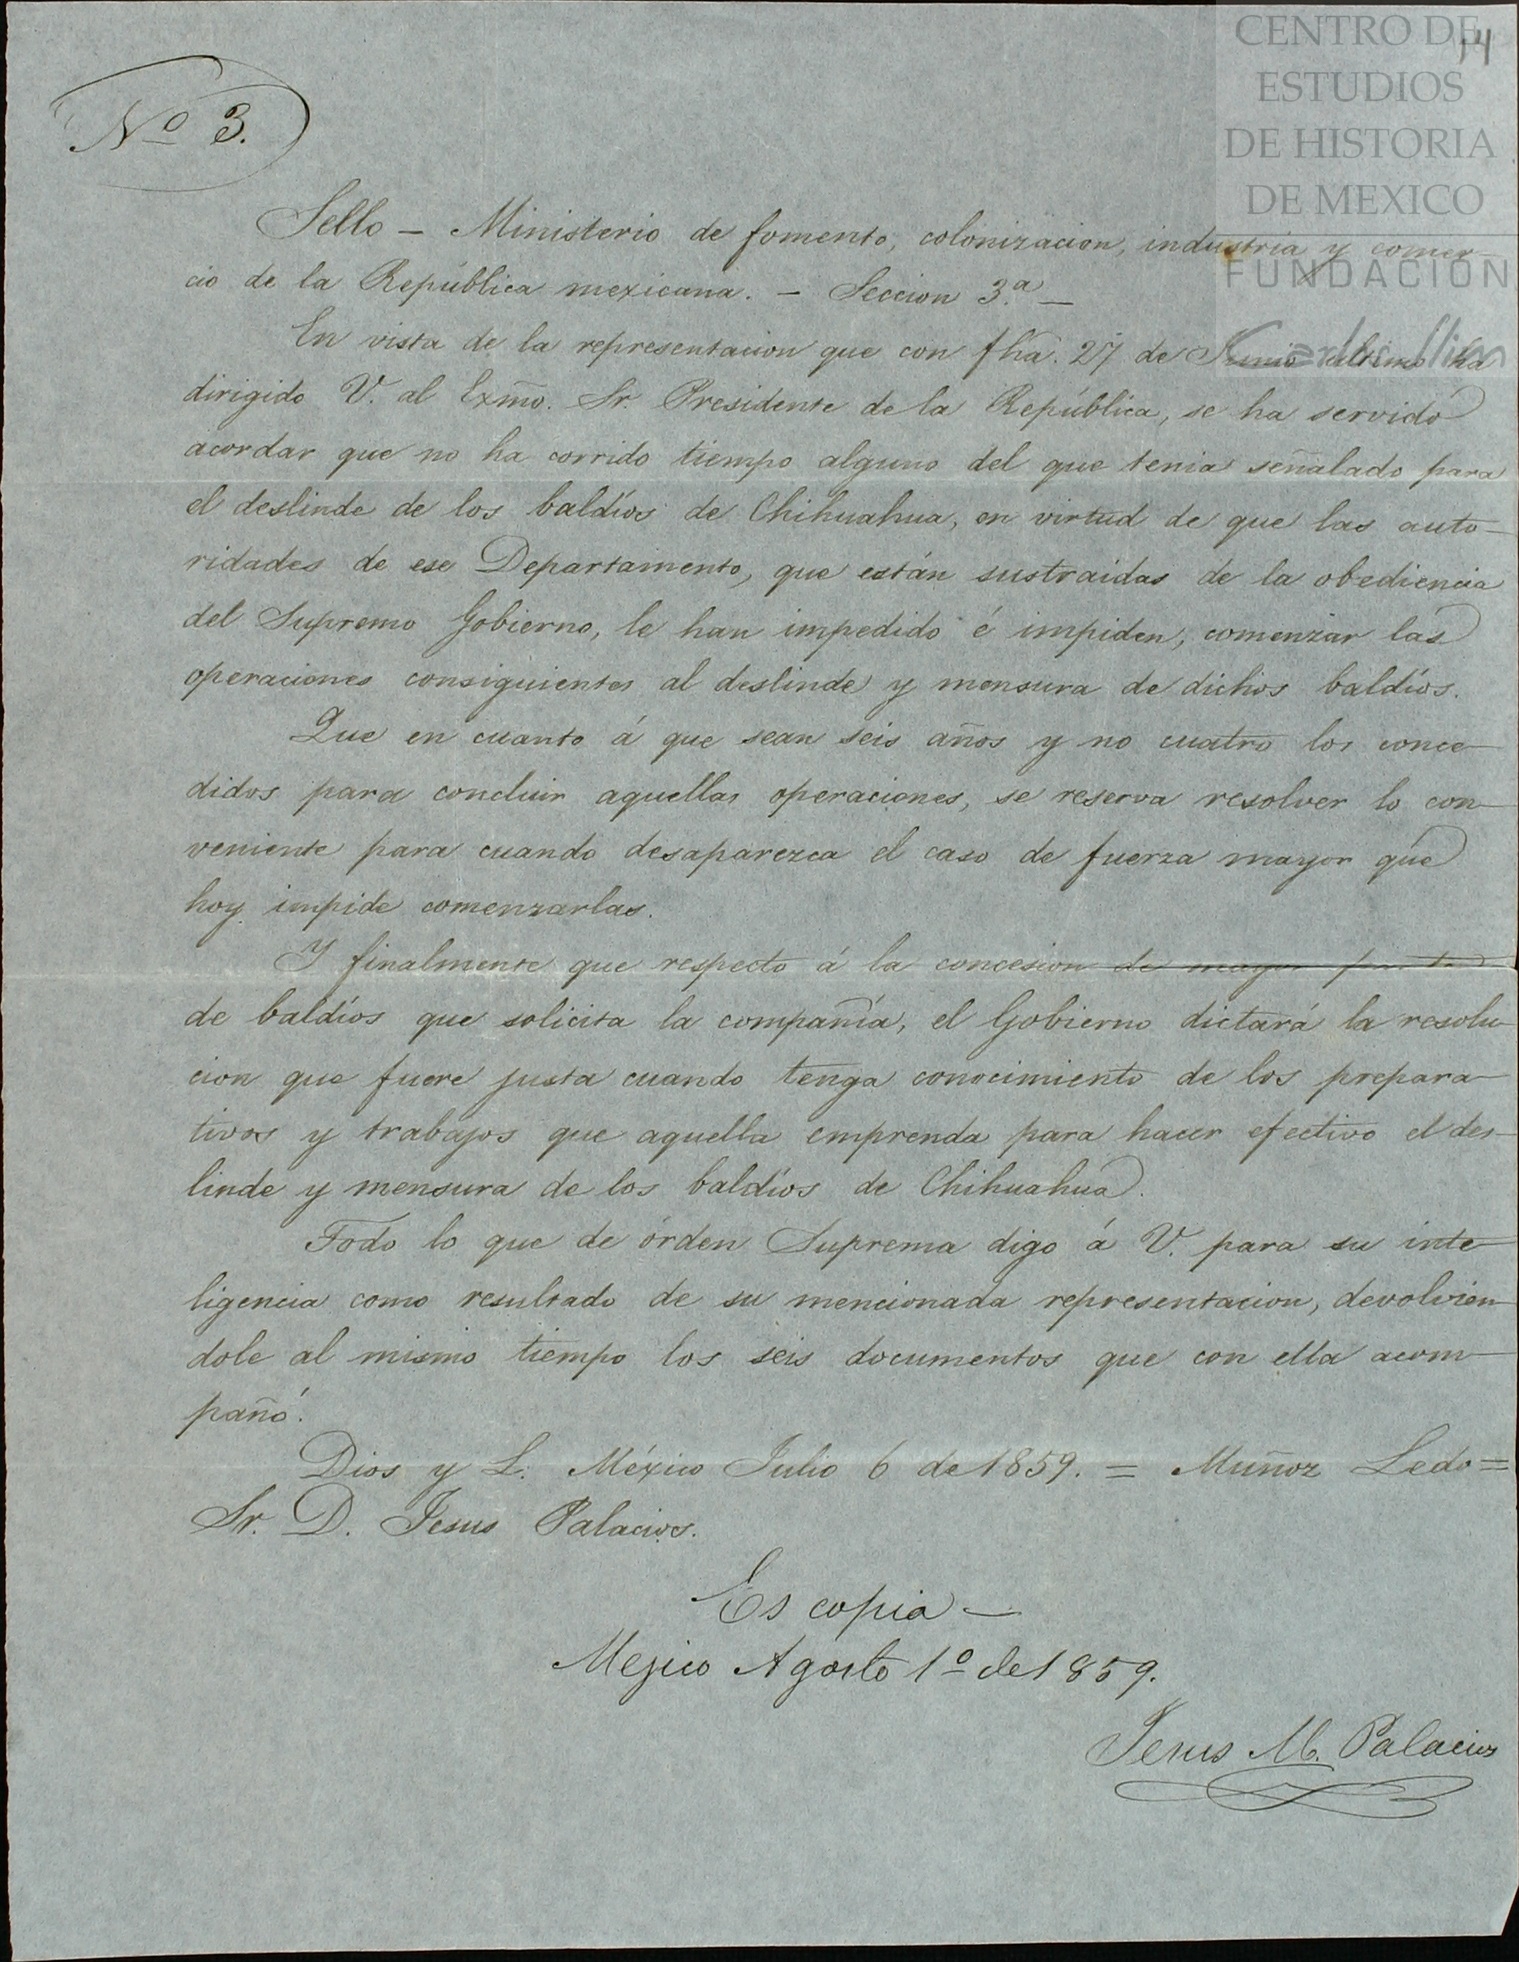 CENTRO DE
ESTUDIOS
DE HISTORIA
DE MEXICO
FUNDACIÓN
Carlos Slim
14
Nº 3.
Sello – Ministerio de fomento, colonizacion, industria y comer-
cio de la República mexicana. – Seccion 3.ª –
En vista de la representacion que con fha. 27 de Junio ultimo ha
dirigido V. al Exmo. Sr. Presidente de la República, se ha servido
acordar que no ha corrido tiempo alguno del que tenia señalado para
el deslinde de los baldíos de Chihuahua, en virtud de que las auto-
ridades de ese Departamento, que están sustraidas de la obediencia
del Supremo Gobierno, le han impedido é impiden, comenzar las
operaciones consiguientes al deslinde y mensura de dichos baldíos.
Que en cuanto á que sean seis años y no cuatro los conce-
didos para concluir aquellas operaciones, se reserva resolver lo con-
veniente para cuando desaparezca el caso de fuerza mayor que
hoy impide comenzarlas.
Y finalmente que respecto á la concesion de mayor parte
de baldíos que solicita la compañía, el Gobierno dictará la resolu-
cion que fuere justa cuando tenga conocimiento de los prepara-
tivos y trabajos que aquella emprenda para hacer efectivo el des-
linde y mensura de los baldíos de Chihuahua.
Todo lo que de órden Suprema digo á V. para su inte-
ligencia como resultado de su mencionada representacion, devolvien-
dole al mismo tiempo los seis documentos que con ella acom-
pañó.
Dios y L. México Julio 6 de 1859. = Muñoz Ledo =
Sr. D. Jesus Palacios.
Es copia –
Mejico Agosto 1º de 1859.
Jesus M. Palacios